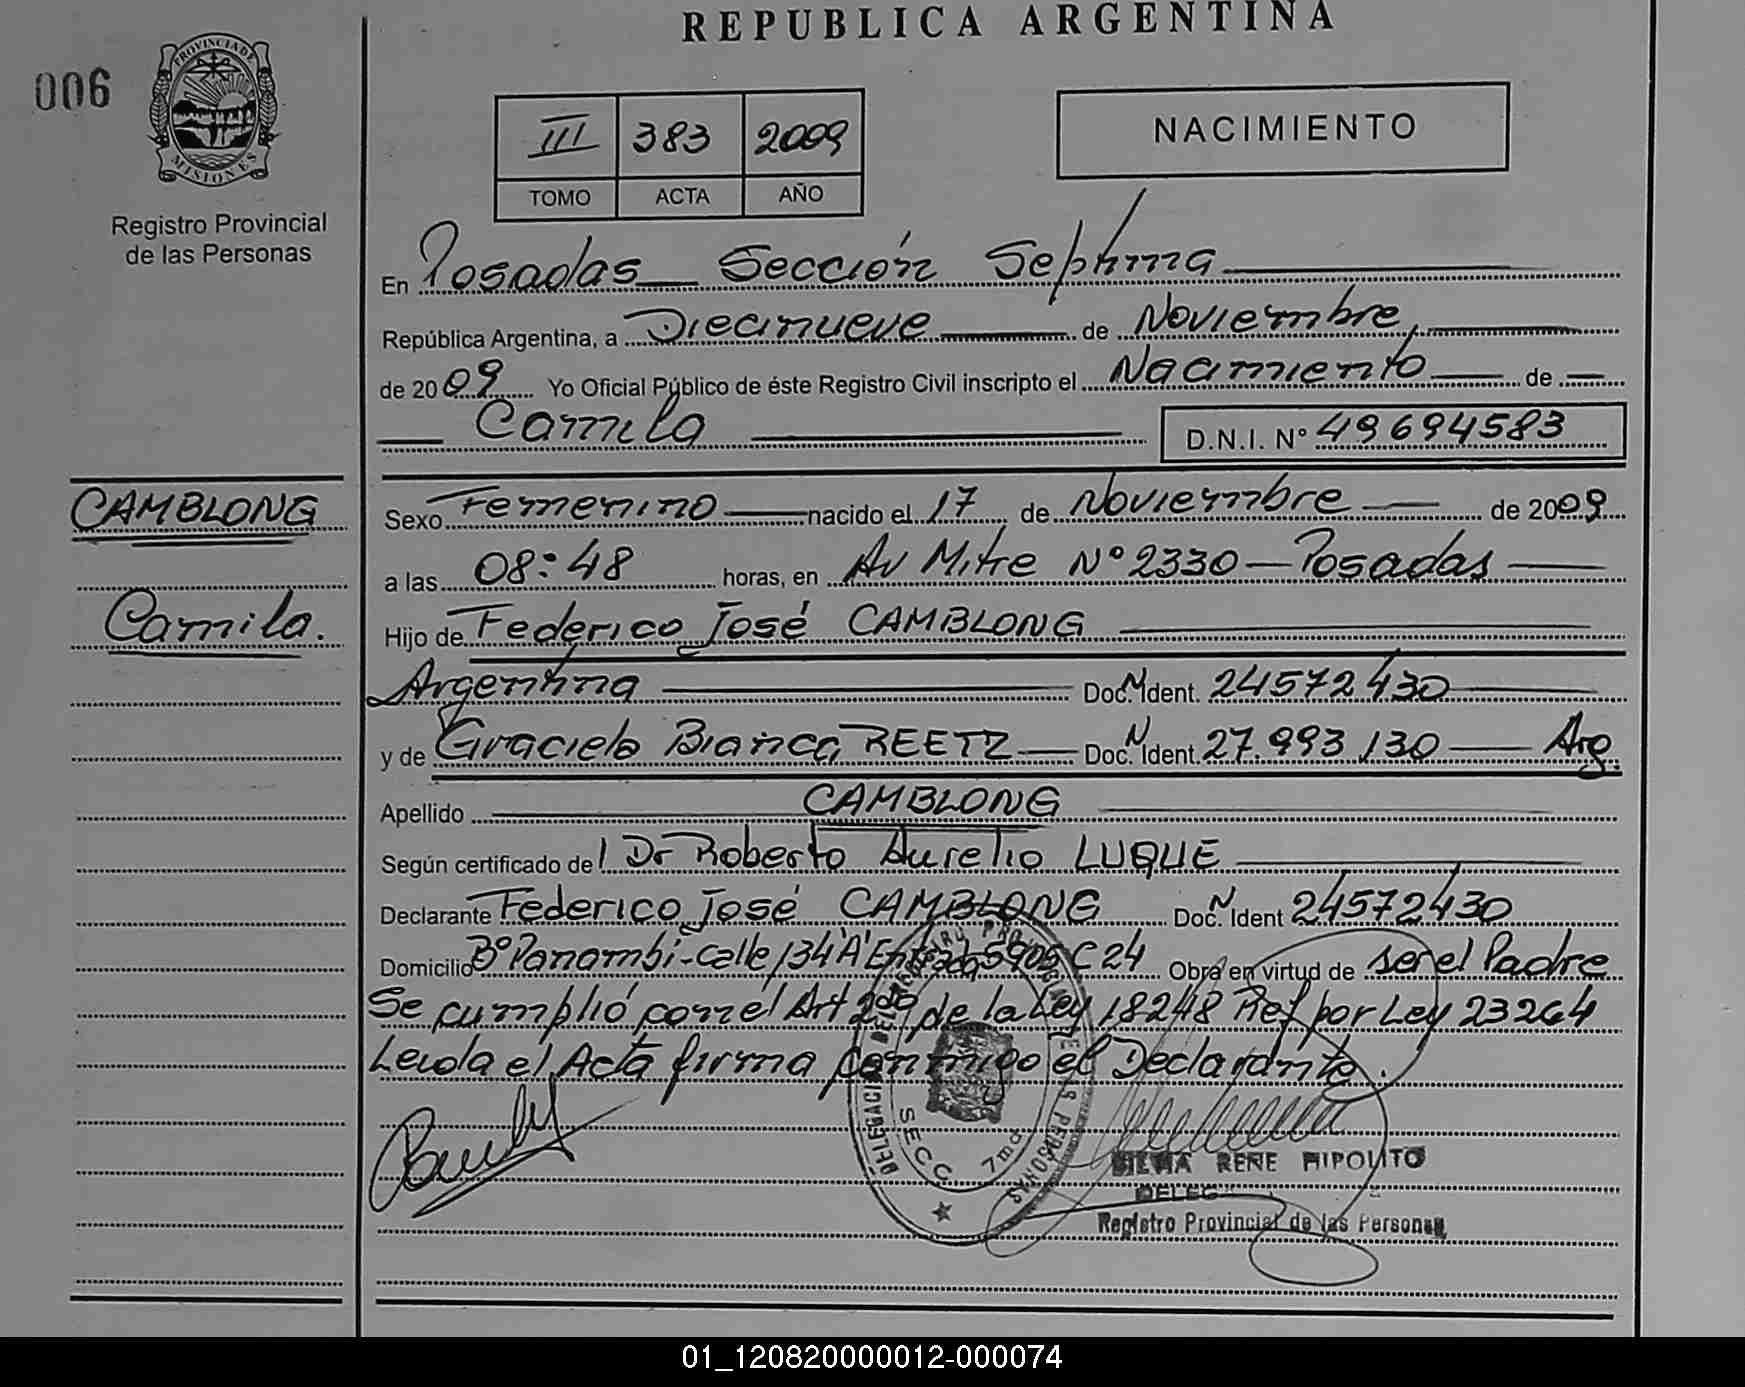 REPUBLICA ARGENTINA
006
PROVINCIA DE
MISIONES
Registro Provincial
de las Personas
III 383 2009
TOMO ACTA AÑO
NACIMIENTO
En Posadas Sección Septima
República Argentina, a Diecinueve de Noviembre,
de 2009 Yo Oficial Público de éste Registro Civil inscripto el Nacimiento de
Camila D.N.I. N° 49694583
CAMBLONG
Camila.
Sexo Femenino nacido el 17 de Noviembre de 2009
a las 08:48 horas, en Av Mitre N° 2330 - Posadas
Hijo de Federico José CAMBLONG
Argentina Doc. N Ident. 24572430
y de Graciela Bianca REETZ Doc. N Ident. 27.993.130 Arg.
Apellido CAMBLONG
Según certificado del Dr Roberto Aurelio LUQUE
Declarante Federico José CAMBLONG Doc. N Ident 24572430
Domicilio B° Panambi-calle 134 "A" 5905 C 24 Obra en virtud de ser el Padre
Se cumplió con el Art 2do de la Ley 18248 Ref por Ley 23264
Leida el Acta firma conmigo el Declarante.
DELEGACION DEL REGISTRO PROVINCIAL DE LAS PERSONAS
SECC. 7ma
RENE HIPOLITO
DELEG
Registro Provincial de las Personas
01_120820000012-000074